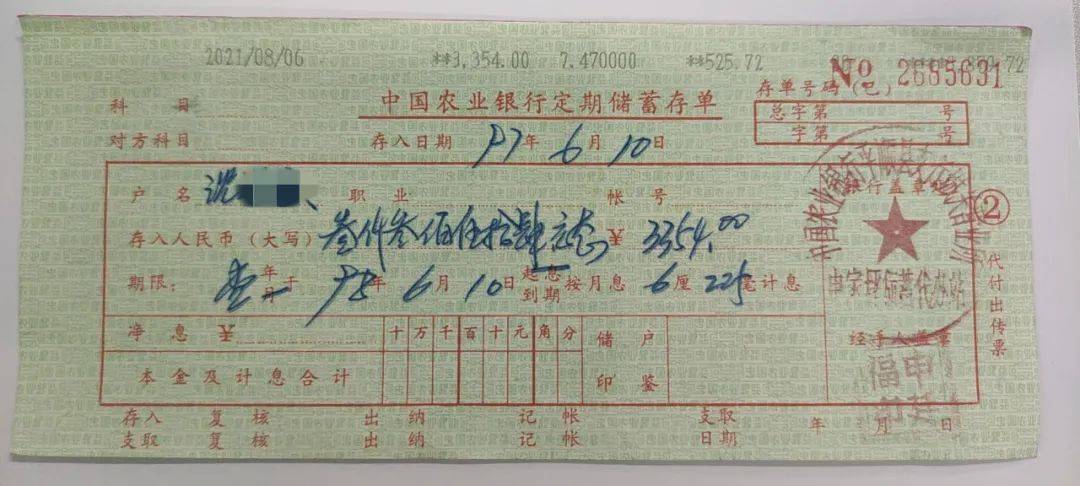 2021/08/06 **3,354.00 7.470000 **525.72
№ 2685631
存单号码(包)
科目
中国农业银行定期储蓄存单
总字第 号
字第 号
对方科目
存入日期 97年6月10日
户名 职业 帐号
银行盖章处
②
代付出传票
存入人民币(大写)叁仟叁佰伍拾肆元 ¥3354.00
期限: 壹 年 月 于 98年6月10日 起息 到期 按月息 6厘225毫计息
净息 ¥
十万千百十元角分
储户
印鉴
经手人盖章
本金及计息合计
存入 复核 出纳 记帐 支取 年 月 日
支取 复核 出纳 记帐 日期